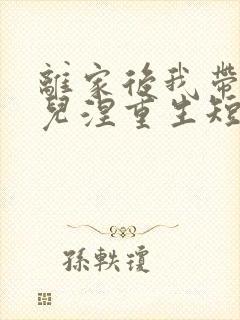 離家後我帶
兒涅重生短
孫軼瓊